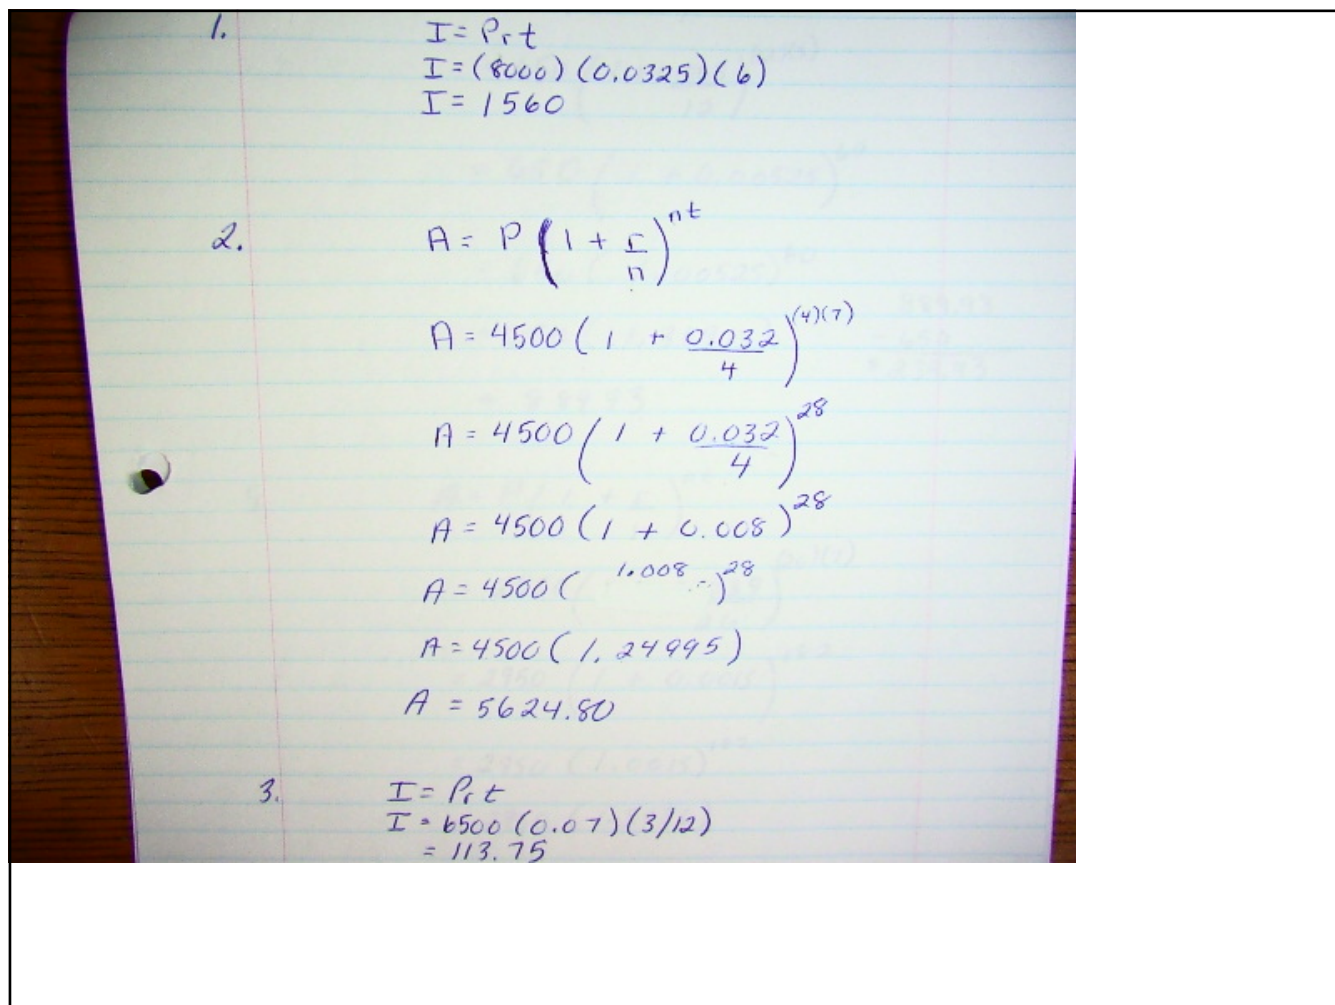 1. I = Prt
I = (8000)(0.0325)(6)
I = 1560
2. A = P(1 + r/n)^nt
A = 4500(1 + 0.032/4)^(4)(7)
A = 4500(1 + 0.032/4)^28
A = 4500(1 + 0.008)^28
A = 4500(1.008)^28
A = 4500(1.24995)
A = 5624.80
3. I = Prt
I = 6500(0.07)(3/12)
= 113.75